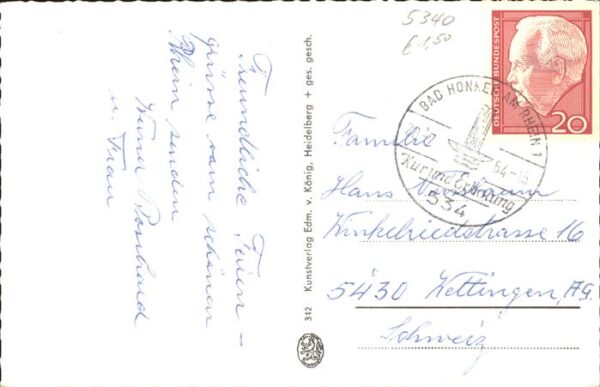 Freundliche Ferien-
grüsse vom schönen
Rhein senden
u. Frau
342 Kunstverlag Edm. v. König, Heidelberg + ges. gesch.
5340
€ 1,50
DEUTSCHE BUNDESPOST
20
BAD HONNEF AM RHEIN 1
Kur und Erholung
534
Familie
Hans
Winkelriedstrasse 16
5430 Wettingen, AG.
Schweiz